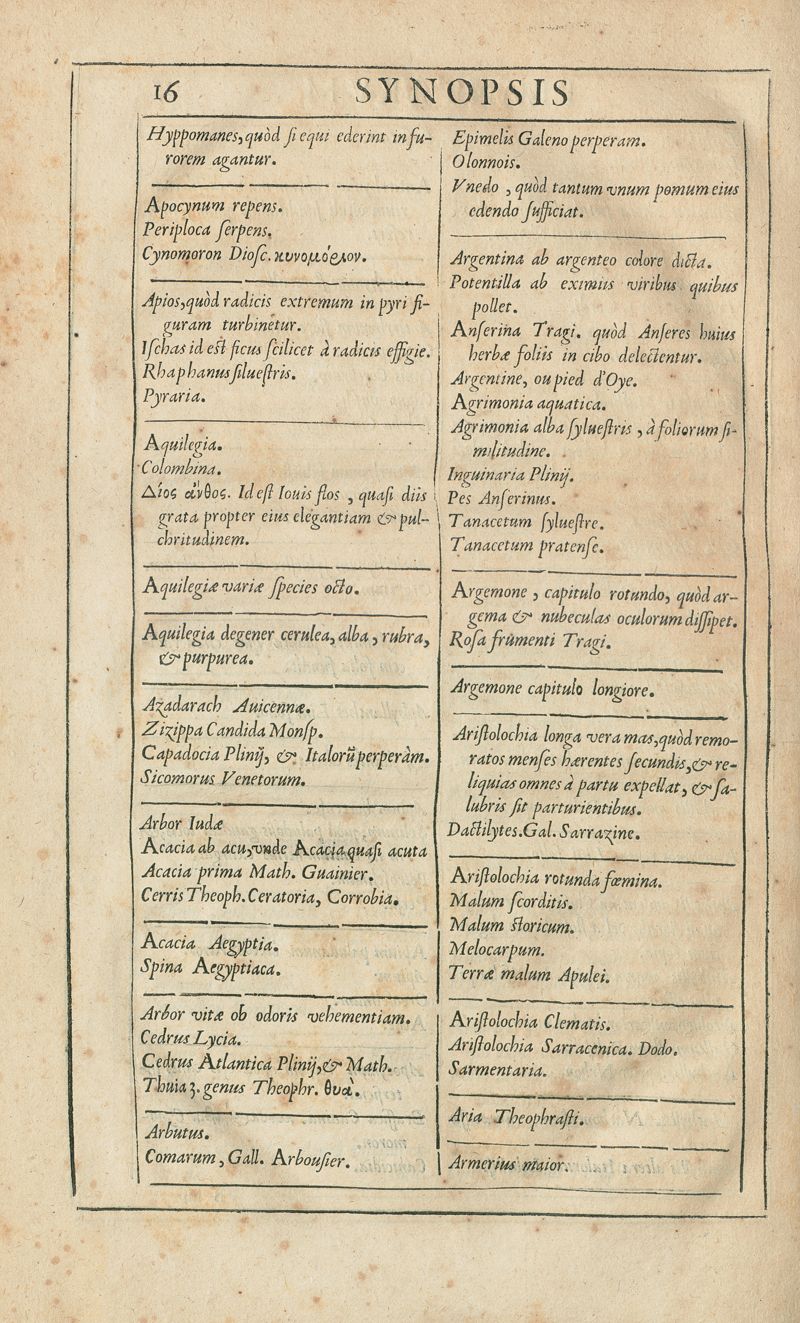 16 SYNOPSIS
Hyppomanes, quòd ſi equi ederint in fu-
rorem agantur.
Apocynum repens.
Periploca ſerpens.
Cynomoron Dioſc. κυνομόρλον.
Apios, quòd radicis extremum in pyri fi-
guram turbinetur.
Iſchas id eſt ficus ſcilicet à radicis effigie.
Rhaphanus ſilueſtris.
Pyraria.
Aquilegia.
Colombina.
Δίος ἄνθος. Id eſt Iouis flos, quaſi diis
grata propter eius elegantiam & pul-
chritudinem.
Aquilegiæ variæ ſpecies octo.
Aquilegia degener cerulea, alba, rubra,
& purpurea.
Azadarach Auicennæ.
Zizippa Candida Monſp.
Capadocia Plinij, & Italorũ perperàm.
Sicomorus Venetorum.
Arbor Iudæ
Acacia ab acu, vnde Acacia quaſi acuta
Acacia prima Math. Guainier.
Cerris Theoph. Ceratoria, Corrobia.
Acacia Aegyptia.
Spina Aegyptiaca.
Arbor vitæ ob odoris vehementiam.
Cedrus Lycia.
Cedrus Atlantica Plinij, & Math.
Thuia 3. genus Theophr. θυὰ.
Arbutus.
Comarum, Gall. Arbouſier.
Epimelis Galeno perperam.
Olonnois.
Vnedo, quòd tantum vnum pomum eius
edendo ſufficiat.
Argentina ab argenteo colore dicta.
Potentilla ab eximiis viribus quibus
pollet.
Anſerina Tragi. quòd Anſeres huius
herbæ foliis in cibo delectentur.
Argentine, ou pied d'Oye.
Agrimonia aquatica.
Agrimonia alba ſylueſtris, à foliorum ſi-
militudine.
Inguinaria Plinij.
Pes Anſerinus.
Tanacetum ſylueſtre.
Tanacetum pratenſe.
Argemone, capitulo rotundo, quòd ar-
gema & nubeculas oculorum diſſipet.
Roſa frumenti Tragi.
Argemone capitulo longiore.
Ariſtolochia longa vera mas, quòd remo-
ratos menſes hærentes ſecundis, & re-
liquias omnes à partu expellat, & ſa-
lubris ſit parturientibus.
Dactilytes. Gal. Sarrazine.
Ariſtolochia rotunda fœmina.
Malum ſcorditis.
Malum ſtoricum.
Melocarpum.
Terræ malum Apulei.
Ariſtolochia Clematis.
Ariſtolochia Sarracenica. Dodo.
Sarmentaria.
Aria Theophraſti.
Armerius maior.